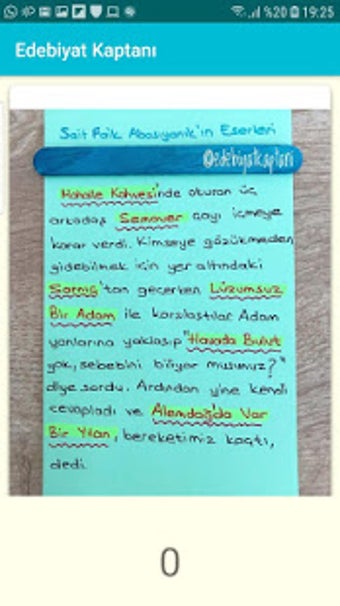 %20 19:25
Edebiyat Kaptanı
Sait Faik Abasıyanık'ın Eserleri
@edebiyatkaptani
Mahalle Kahvesi'nde oturan üç
arkadaş Semaver çayı içmeye
karar verdi. Kimseye gözükmeden
gidebilmek için yer altındaki
Sarnıç'tan geçerken Lüzumsuz
Bir Adam ile karşılaştılar Adam
yanlarına yaklaşıp "Havada Bulut
yok, sebebini biliyor musunuz?"
diye sordu. Ardından yine kendi
cevapladı ve Alemdağ'da Var
Bir Yılan, bereketimiz kaçtı,
dedi.
0